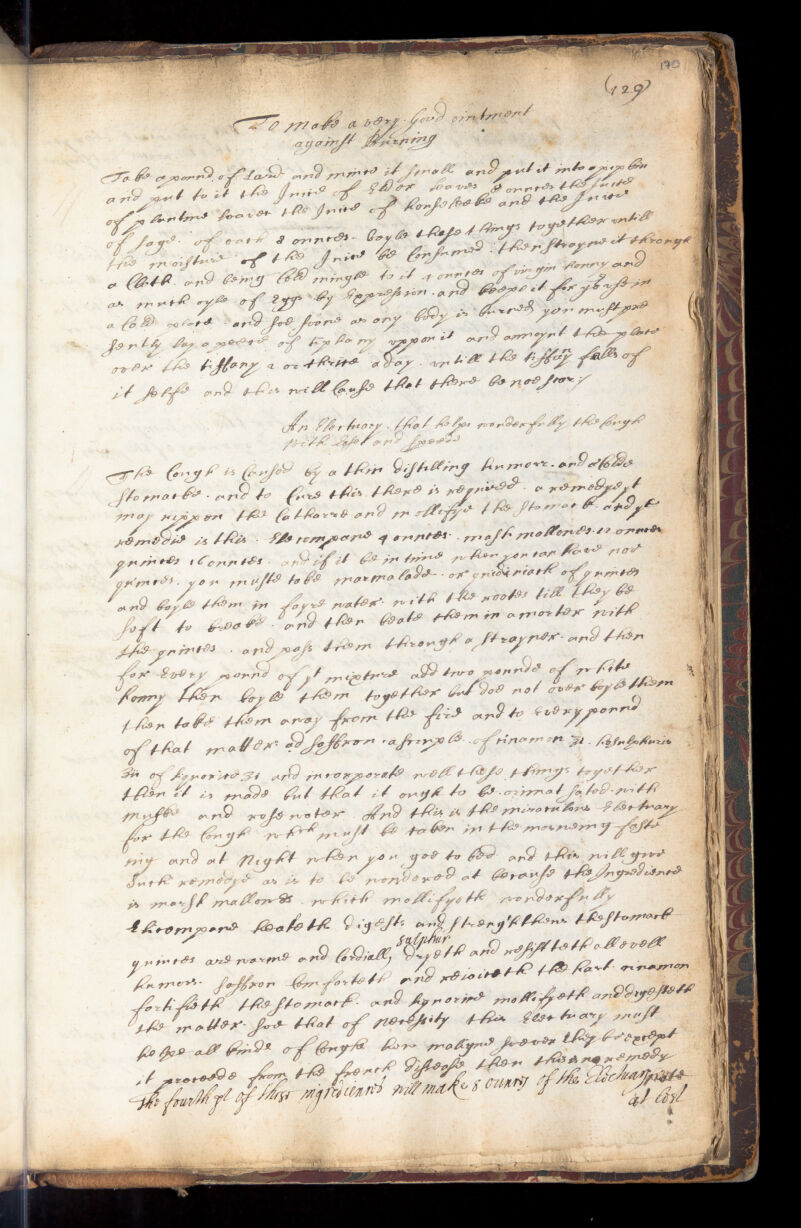 170
(129)
To make a very Good ointment
against Burning
Take a pound of Lard and mince it small and put it into a pipkin
and put to it the Juice of Elder leaves 8 ounces the Juice
of plantine leaves the Juice of houseleeke and the Juice
of sage of each 8 ounces boyle these things together untill
the moisture of the Juice be Consumed then strayne it through
a Cloth and being Cold mingle to it 4 ounces of virgin honny and
as much oyle of Eggs by Expression and keepe it for your use in
a Cold place and soe soone as any body is burned you must pre
sently lay a peece of tiphany uppon it and annoynt the place
over the tiffany 2 or thrice a day untill the tiffany falls of
it selfe and this will Cause that there be noe scar
An Electuary that helps wonderfully the Cough
with Cost and speede
The Cough is Caused by a thin distilling humore and a Colde
stomacke and to Cure this there is required a remedye yt
may rippen the Catharre and mollifye the stomack and ye
remedie is this Elecompane 4 ounces mash mallowes 12 ounces
quinces 16 ounces and if it be in time when you can have noe
quinces you muste take marmalade or of quinces
and boyle them in fayre water with the rootes till they be
soft to breake and then beate them in a morter with
the quinces and pass them through a strayner and then
for Every pound of yt mixture add two pounds of white
honny then boyle them together but doe not over boyle them
then take them away from the fire and to Every pound
of that matter ad saffron a scruple of cinamon ʒi
of liquorice ʒi and incorporate well these things together
then it is made but that it ought to be with
muske and rose water And this is the miraculous Electuary
for the Cough which must be taken in the morneing faste
ing and at Night when you goe to bed and this will give
such remedye as is to be wondered at because the Ingredience
is marsh mallowes which mollifyeth wonderfully
Elicompane heateth digests and strengthens the stomack
quinces are warme and Cordiall, sulphur dryeth and resisteth all evell
humors saffron Comforteth and rejoiceth the hart cinamon
fortifieth the stomack and liquorice mollifyeth and digesteth
the matter soe that of Necessity this Electuary must
helpe all kinde of Coughs how maligne soever they be except
it proceede from the french disease then there no remedy
The fourth pt of these ingredients will make 8 ounces of the Electuary
at Cost